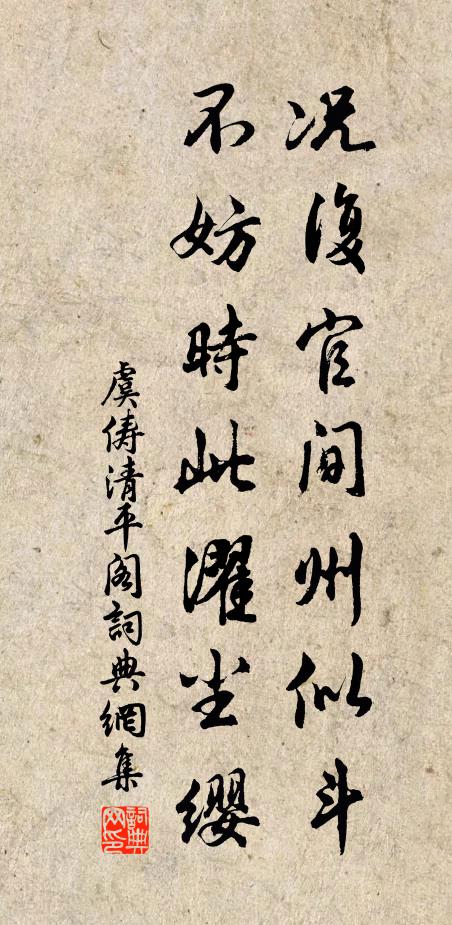 况復官间州似斗
不妨時此濯尘纓
虞儔清平阁詞典網集
詞典网印